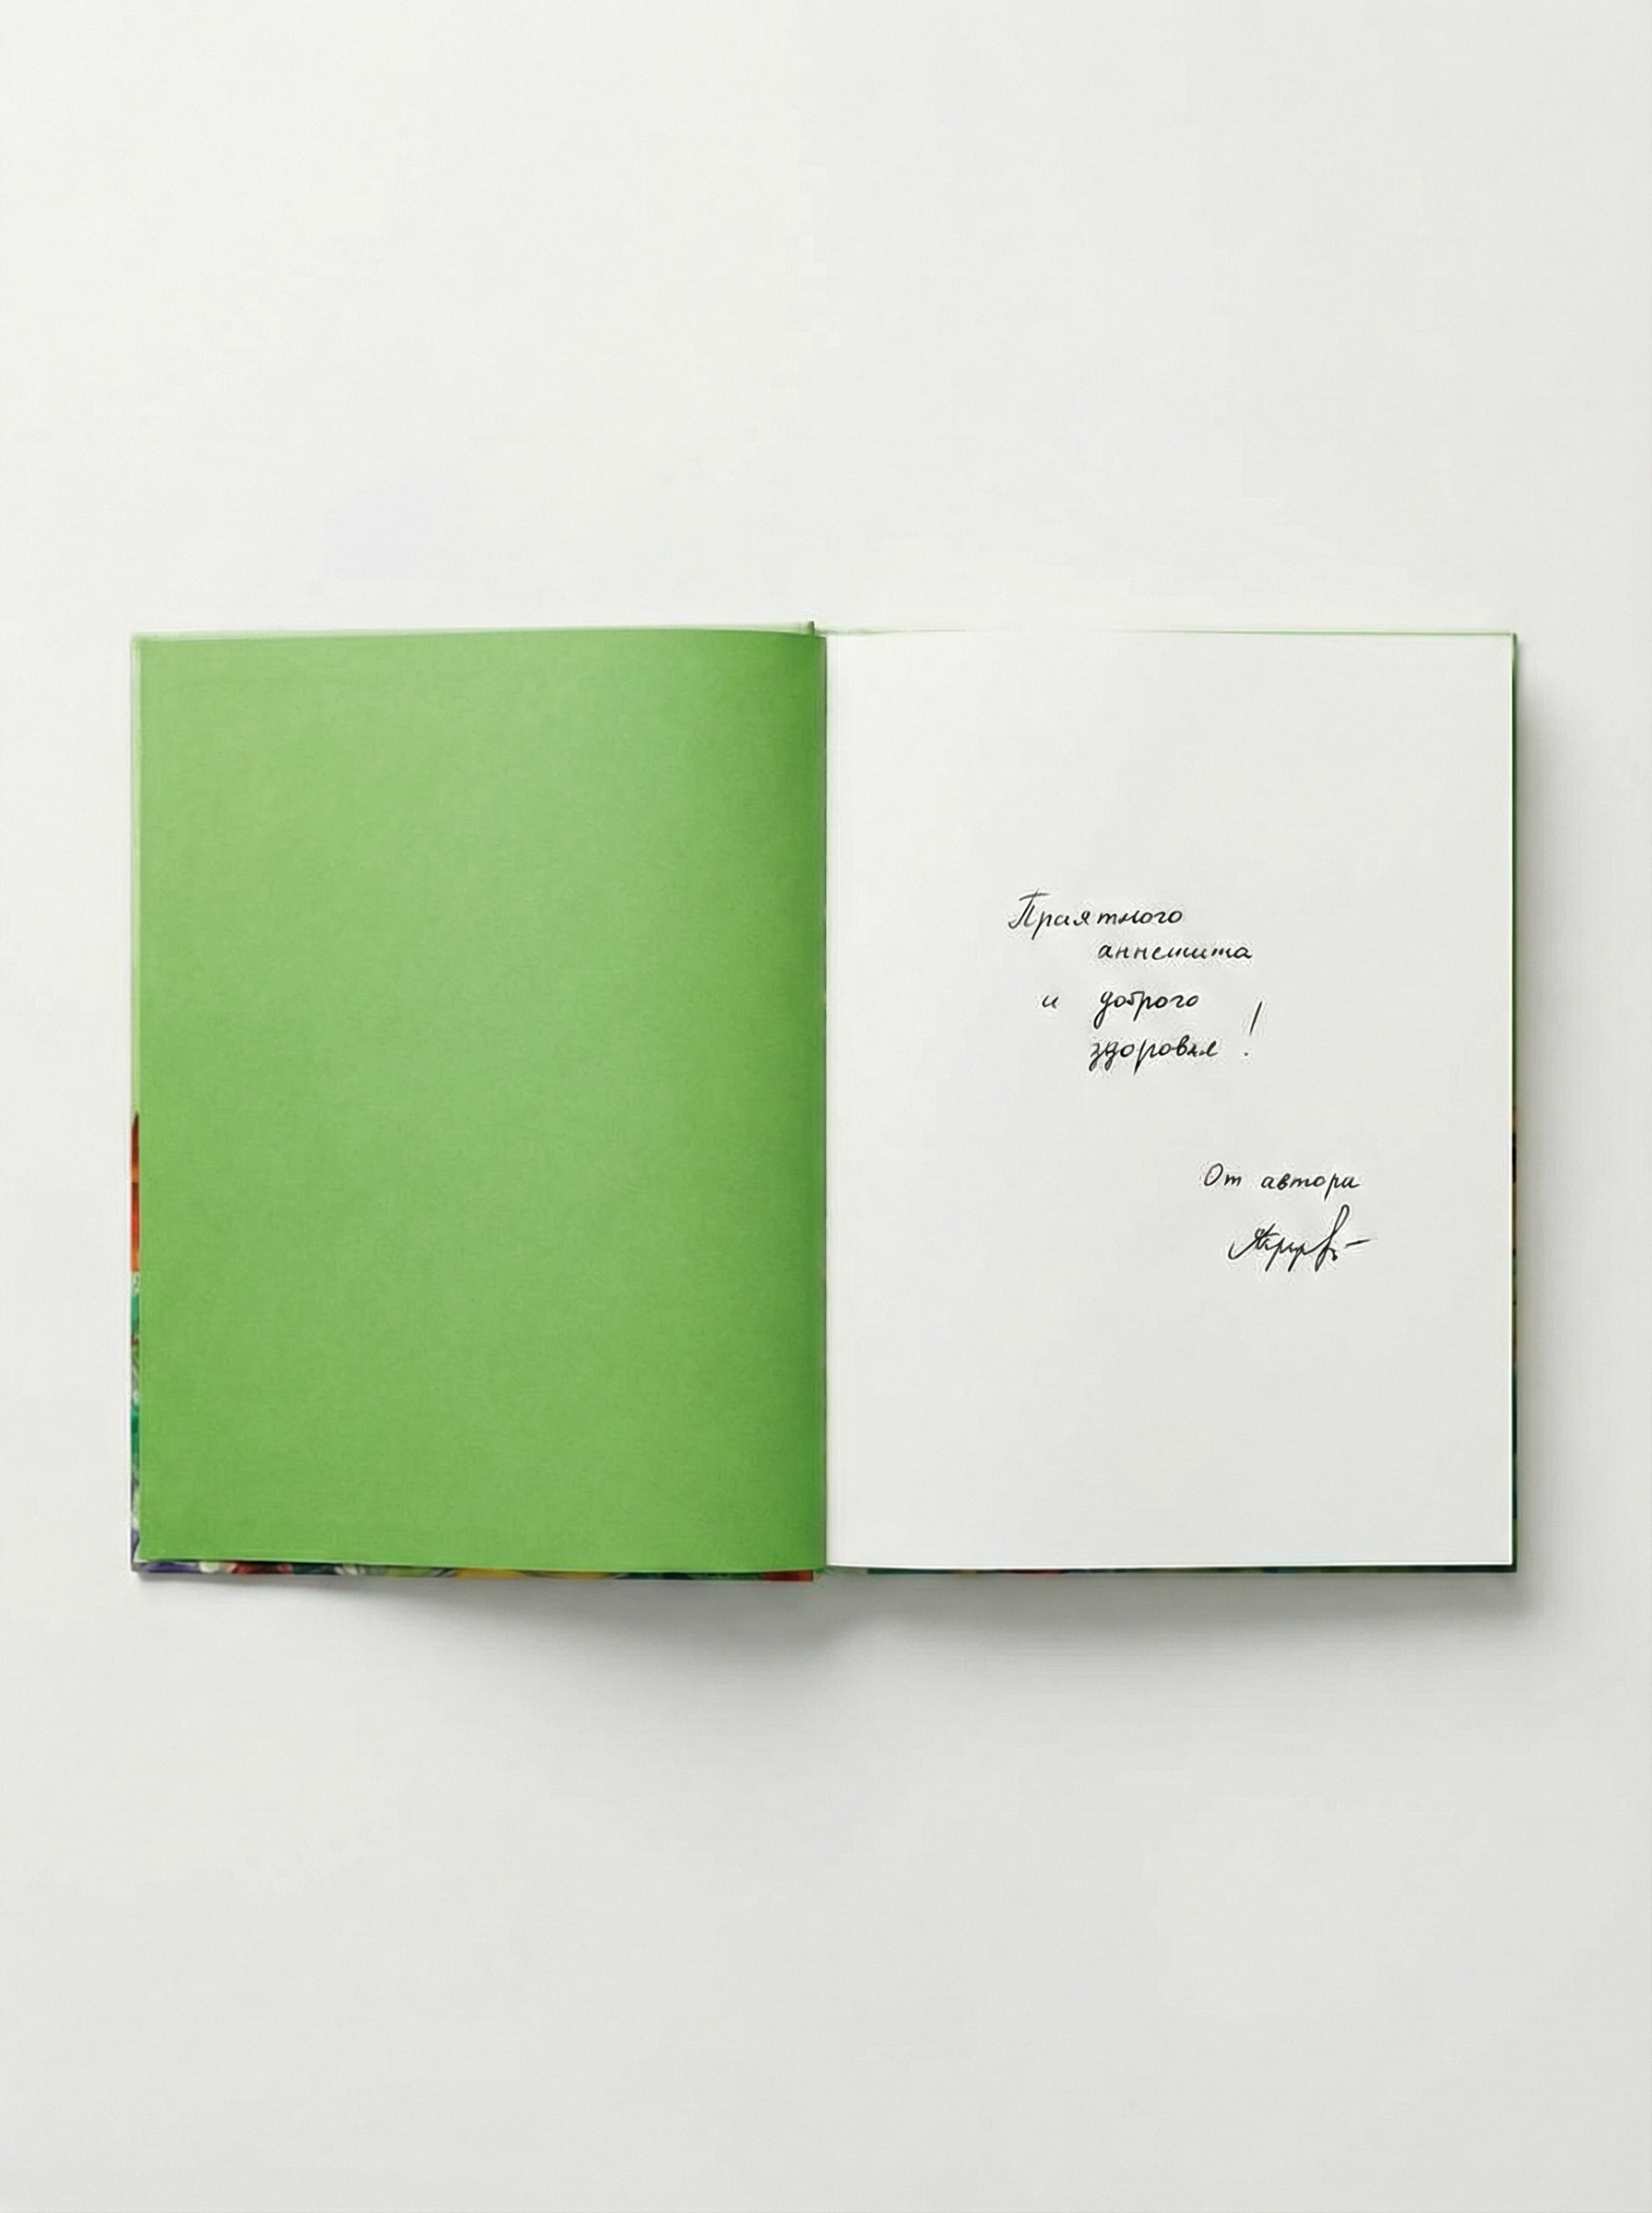 Приятного
аппетита
и доброго
здоровья!
От автора